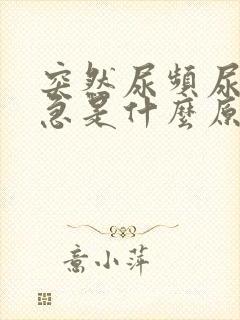 突然尿頻尿
急是什麼原
喬小萍